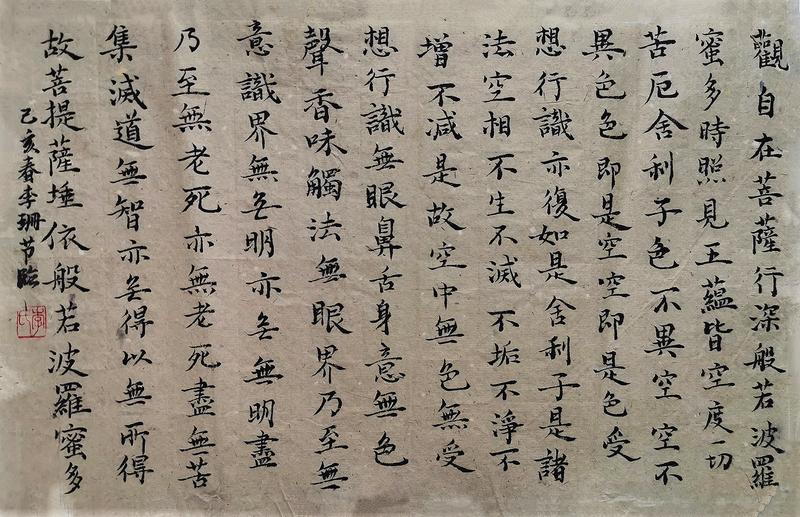 觀自在菩薩行深般若波羅
蜜多時照見五蘊皆空度一切
苦厄舍利子色不異空空不
異色色即是空空即是色受
想行識亦復如是舍利子是諸
法空相不生不滅不垢不淨不
增不减是故空中無色無受
想行識無眼鼻舌身意無色
聲香味觸法無眼界乃至無
意識界無无明亦无無明盡
乃至無老死亦無老死盡無苦
集滅道無智亦无得以無所得
故菩提薩埵依般若波羅蜜多
己亥春李珊节临